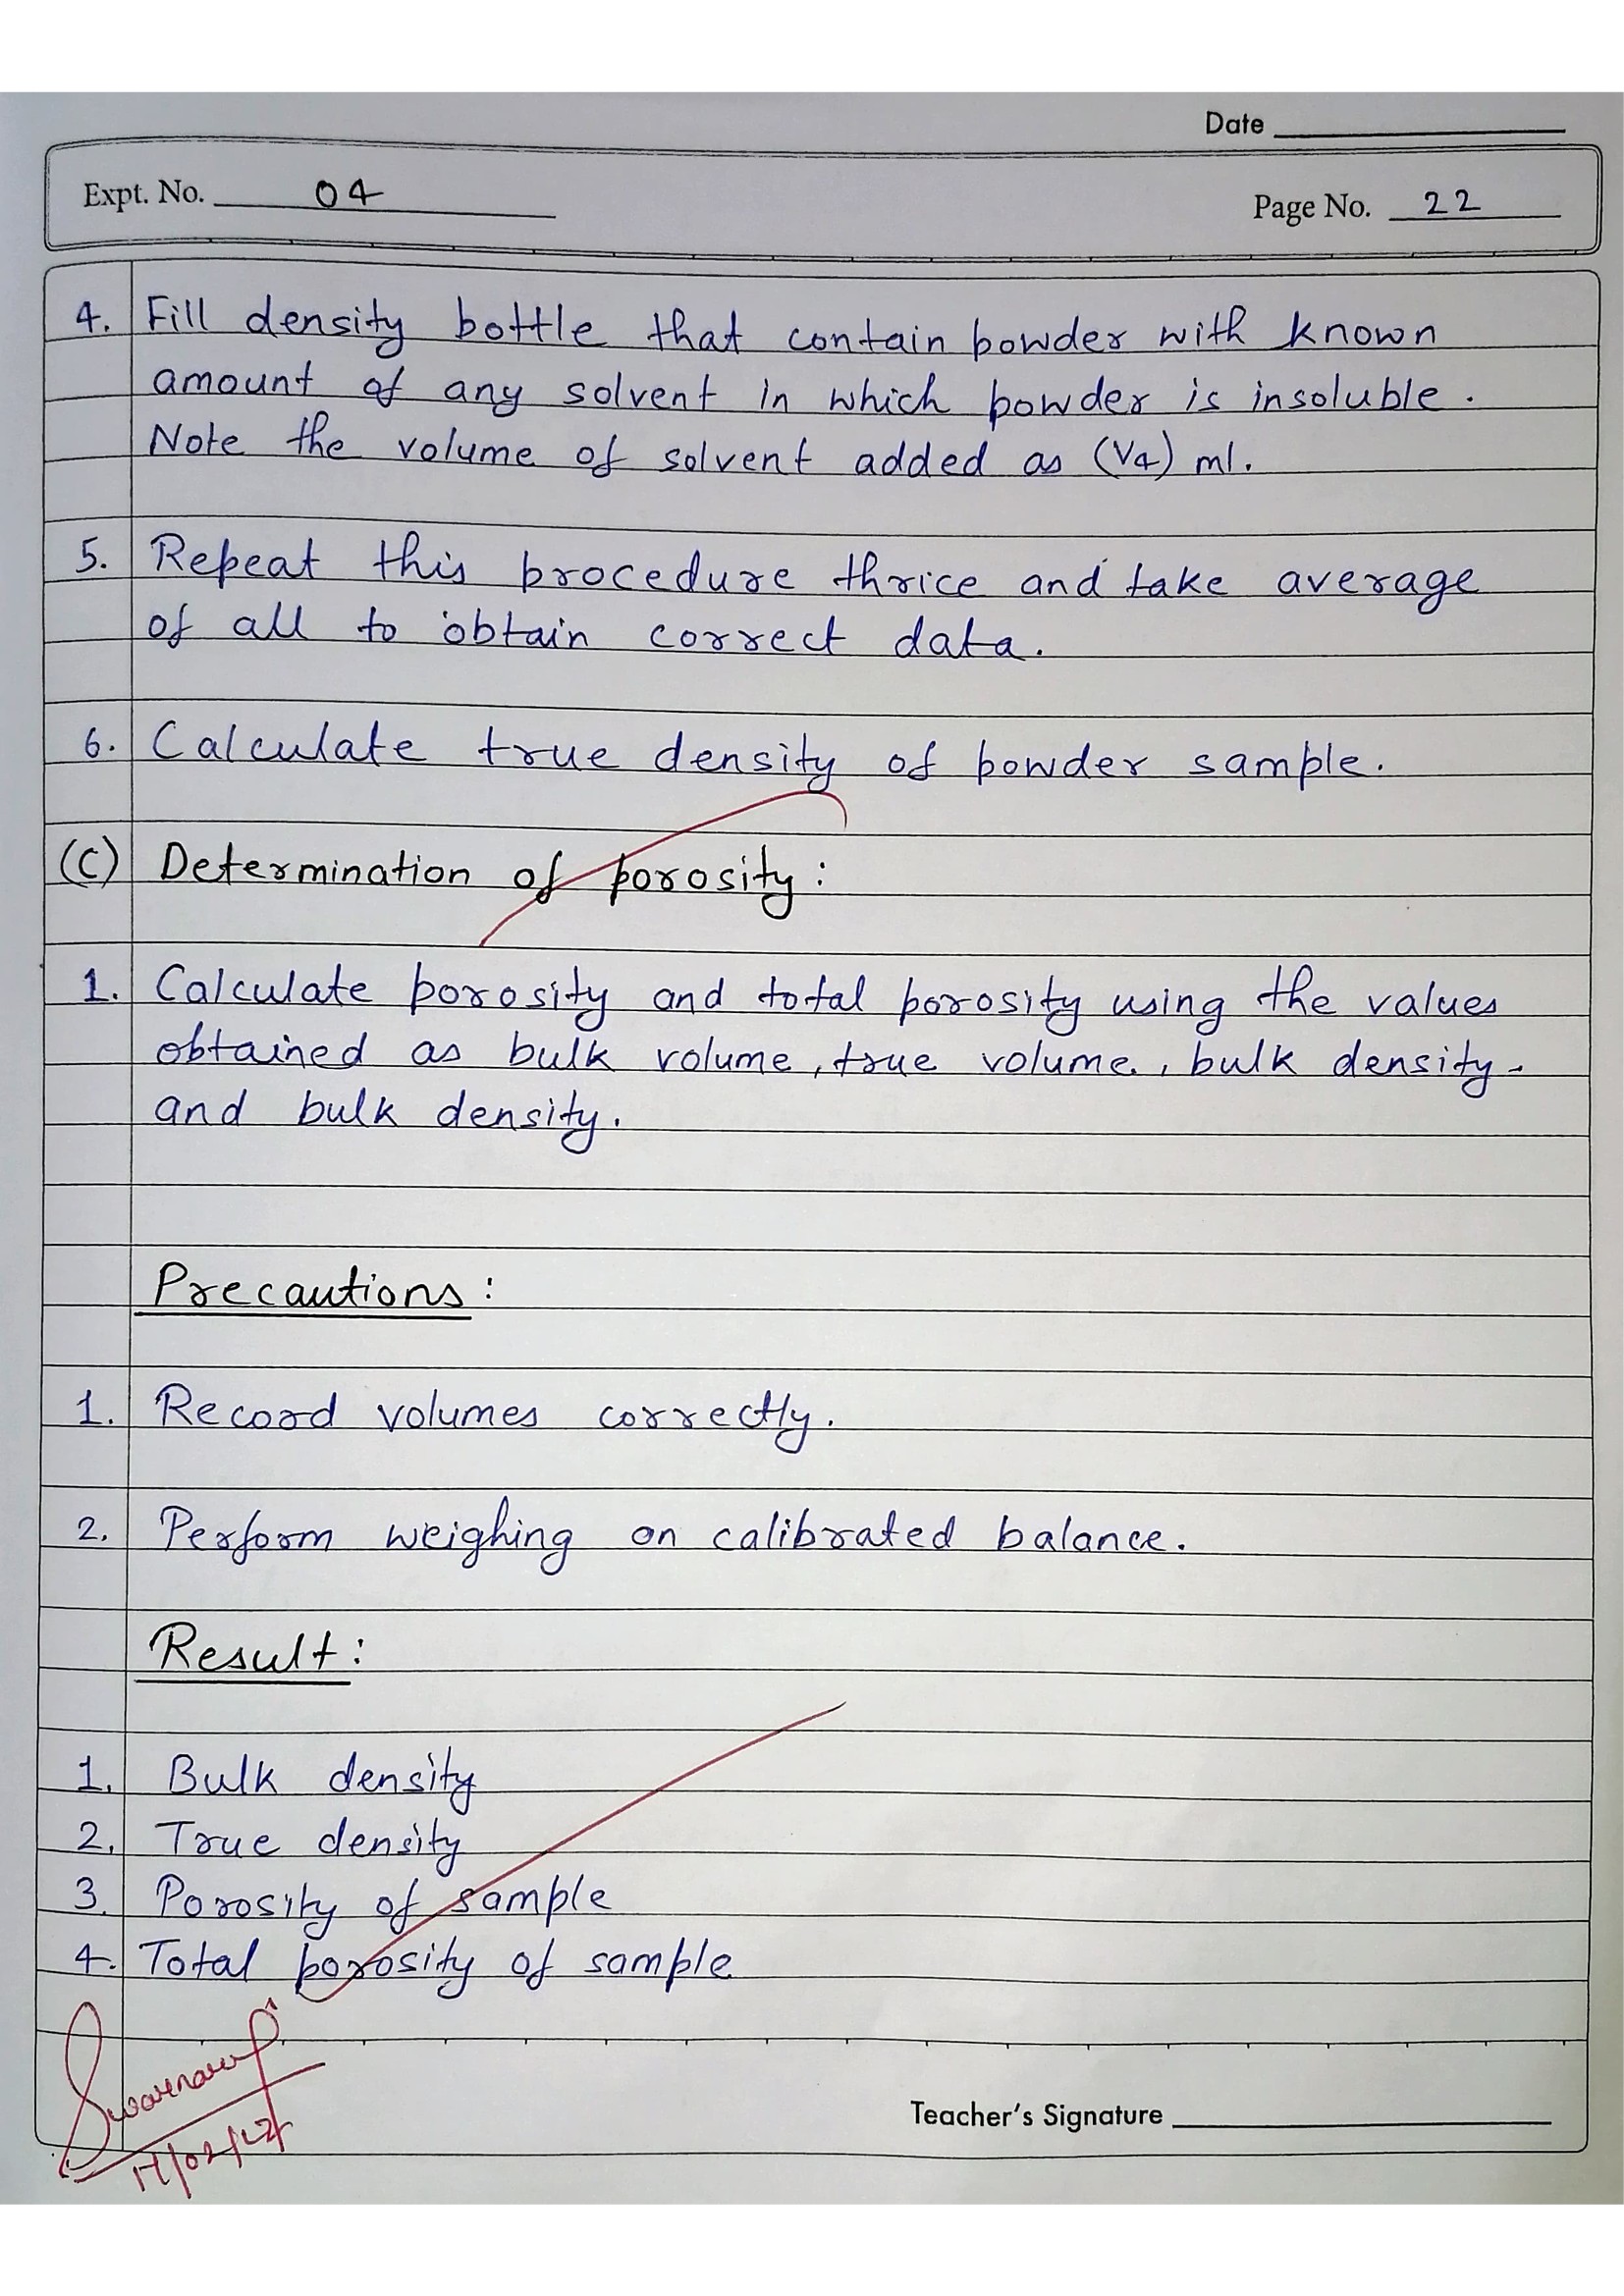 Date
Expt. No. 04
Page No. 22
4. Fill density bottle that contain powder with known
amount of any solvent in which powder is insoluble.
Note the volume of solvent added as (V4) ml.
5. Repeat this procedure thrice and take average
of all to obtain correct data.
6. Calculate true density of powder sample.
(C) Determination of porosity:
1. Calculate porosity and total porosity using the values
obtained as bulk volume, true volume, bulk density
and bulk density.
Precautions:
1. Record volumes correctly.
2. Perform weighing on calibrated balance.
Result:
1. Bulk density
2. True density
3. Porosity of sample
4. Total porosity of sample
Teacher's Signature